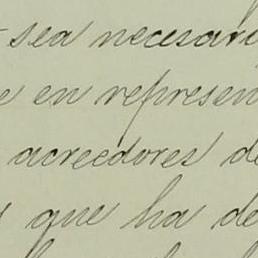 sea necesari
e en represen
acreedores de
que ha de